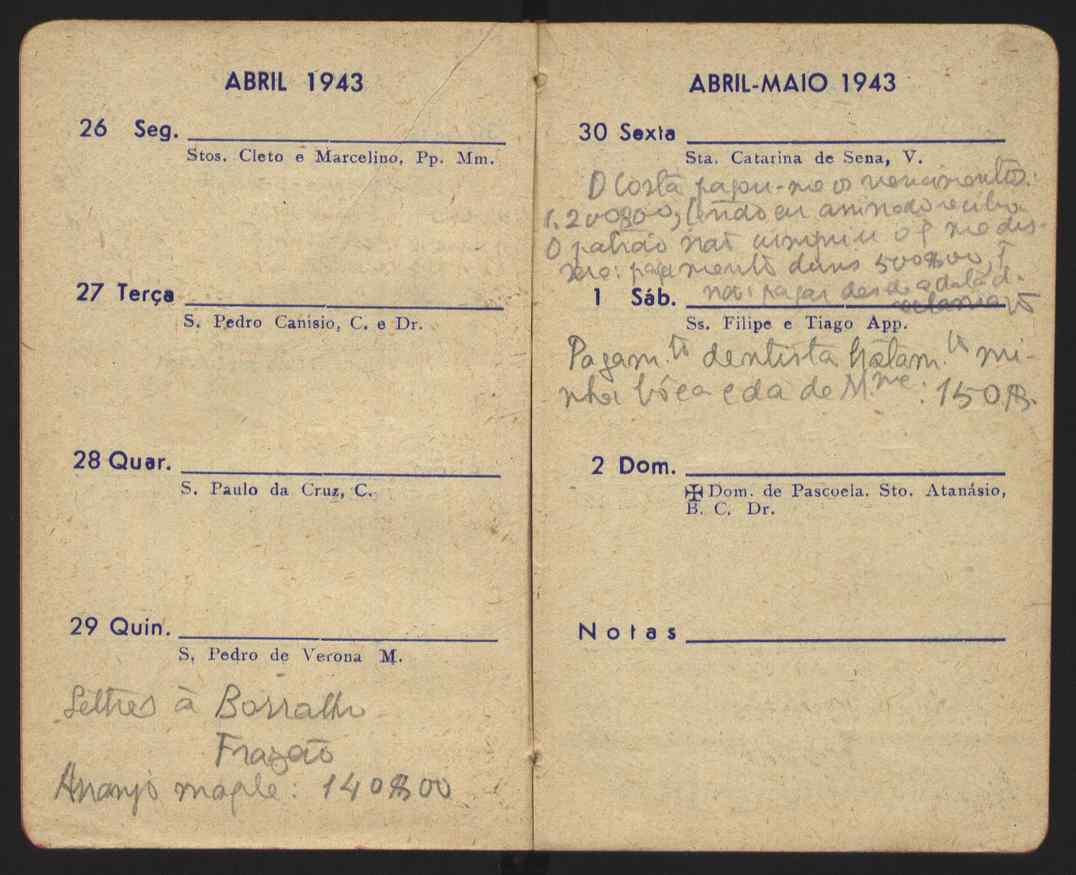 ABRIL 1943
26 Seg.
Stos. Cleto e Marcelino, Pp. Mm.
27 Terça
S. Pedro Canísio, C. e Dr.
28 Quar.
S. Paulo da Cruz, C.
29 Quin.
S. Pedro de Verona M.
Lettres à Borralho
Frazão
Arranjo maple: 140$00
ABRIL-MAIO 1943
30 Sexta
Sta. Catarina de Sena, V.
O Costa pagou-me os vencimentos:
1.200$00, tendo eu assinado recibo
O patrão não cumpriu o q me dis-
sera: pagamento duns 500$00,
1 Sáb.
não pagar desde a data d
Ss. Filipe e Tiago App.
Pagam.to dentista tratam.to mi-
nha bôca e da de M.me: 150$.
2 Dom.
✠ Dom. de Pascoela. Sto. Atanásio,
B. C. Dr.
Notas